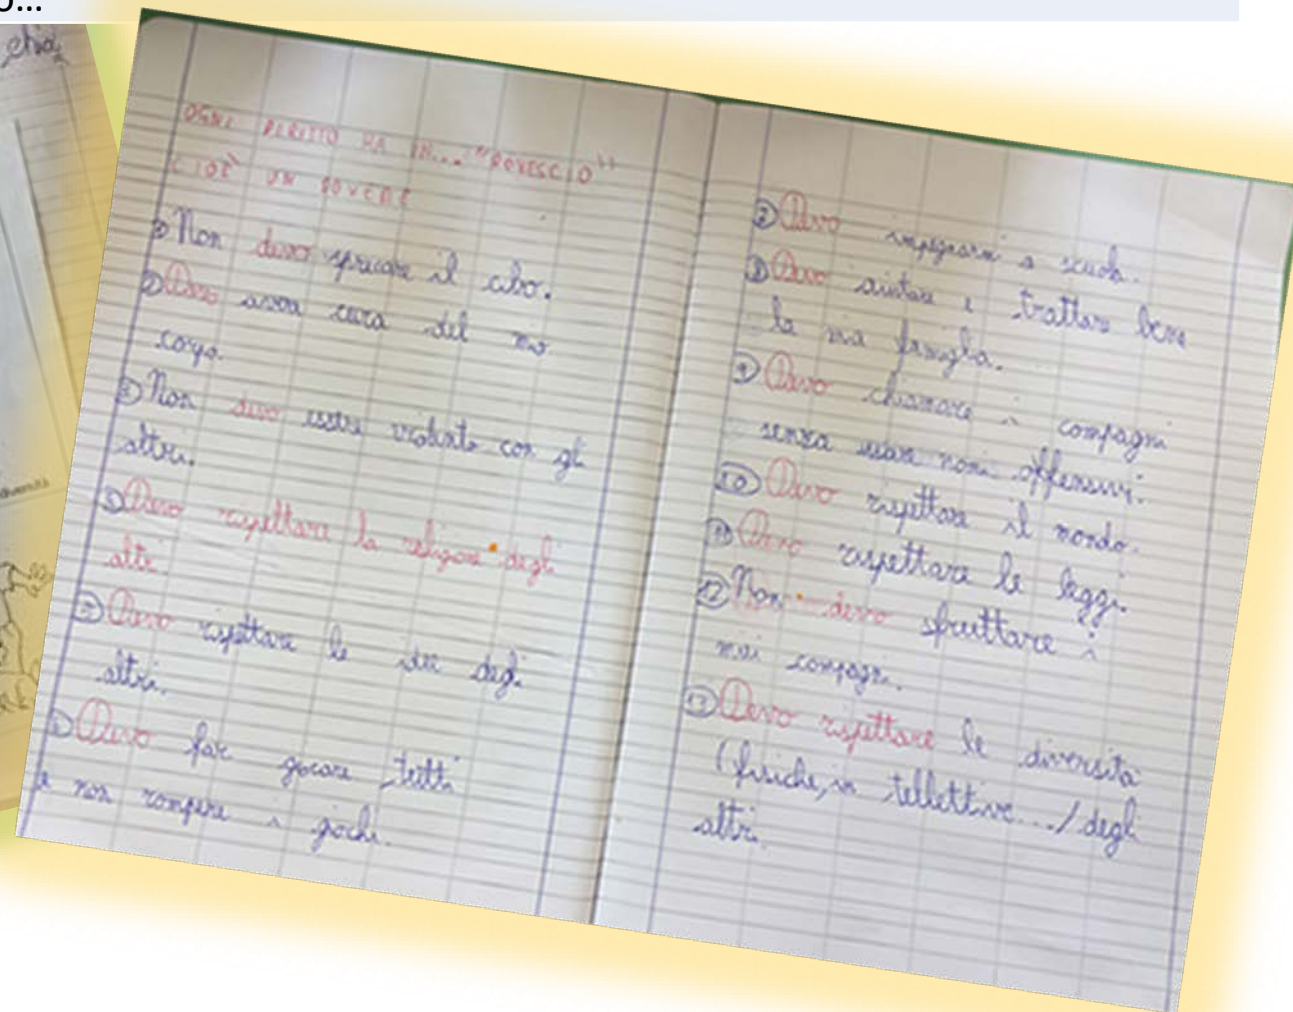 o...
chia
diversità
OGNI DIRITTO HA IN... "ROVESCIO"
CIOÈ UN DOVERE
Non devo sprecare il cibo.
Devo avere cura del mio
corpo.
③ Non devo essere violento con gli
altri.
Devo rispettare la religione degli
altri
Devo rispettare le idee degli
altri.
Devo far giocare tutti
e non rompere i giochi.
Devo impegnarmi a scuola.
Devo aiutare e trattare bene
la mia famiglia.
⑨ Devo chiamare i compagni
senza usare nomi offensivi.
⑩ Devo rispettare il mondo.
⑪ Devo rispettare le leggi.
⑫ Non devo sfruttare i
miei compagni.
⑬ Devo rispettare le diversità
(fisiche, in tellettive.../ degli
altri.